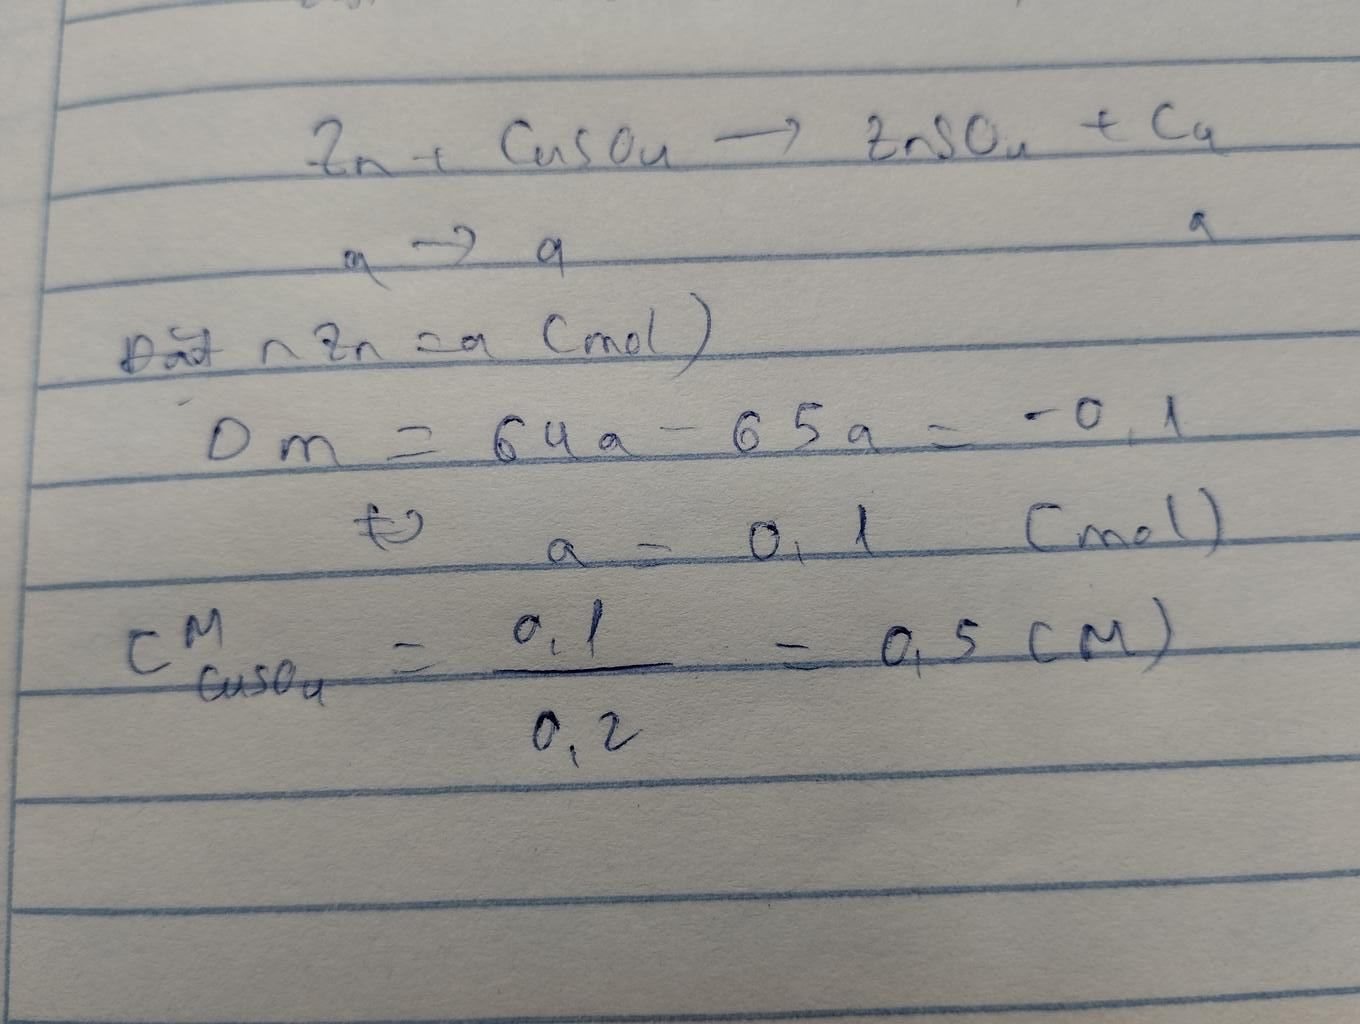 Zn + CuSO4 → ZnSO4 + Cu
a → a a
Đặt nZn = a (mol)
Δm = 64a - 65a = -0,1
⇔ a = 0,1 (mol)
CM CuSO4 = 0,1 / 0,2 = 0,5 (M)